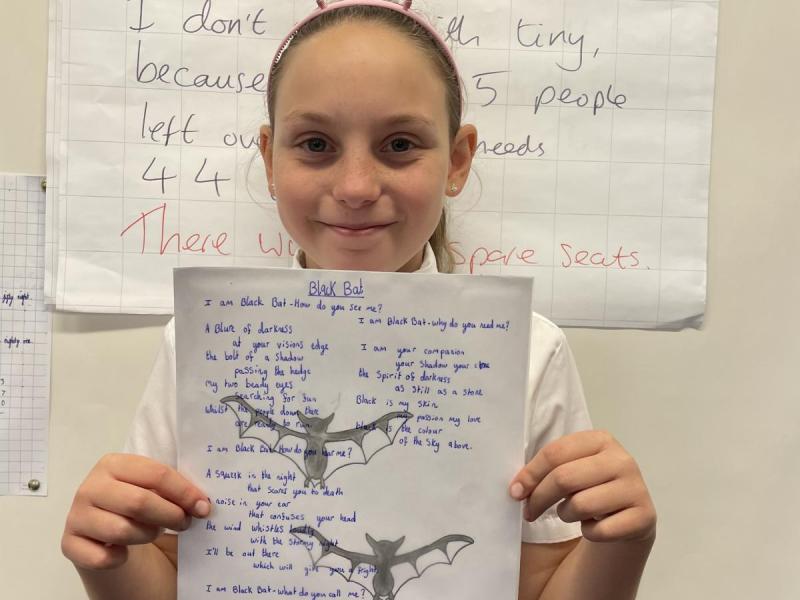 I don't with tiny,
because 5 people
left needs
44
There spare seats.
Black Bat
I am Black Bat - How do you see me?
A Blure of darkness
at your visions edge
the bolt of a shadow
passing the hedge
my two beady eyes
searching for fun
whilst the people down there
are ready to run.
I am Black Bat - How do you hear me?
A squeek in the night
that scares you to death
a noise in your ear
that confuses your head
the wind whistles loudly
with the stormy night
I'll be out there
which will give you a fright
I am Black Bat - what do you call me?
I am Black Bat - why do you need me?
I am your compasion
your shadow your
the Spirit of darkness
as still as a stone
Black is my skin
my passion my love
black is the colour
of the sky above.